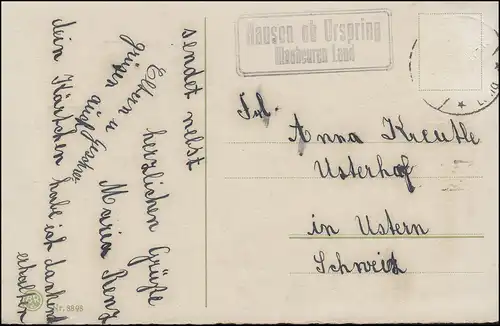 Hausen ob Urspring
Blaubeuren Land
Frl.
Anna Kreutle
Usterhof
in Ustern
Schweiz
sendet nebst
Eltern u.
herzlichen Grüße
Maria Renz
dein Kärtchen habe ich dankend
erhalten
Nr. 8898